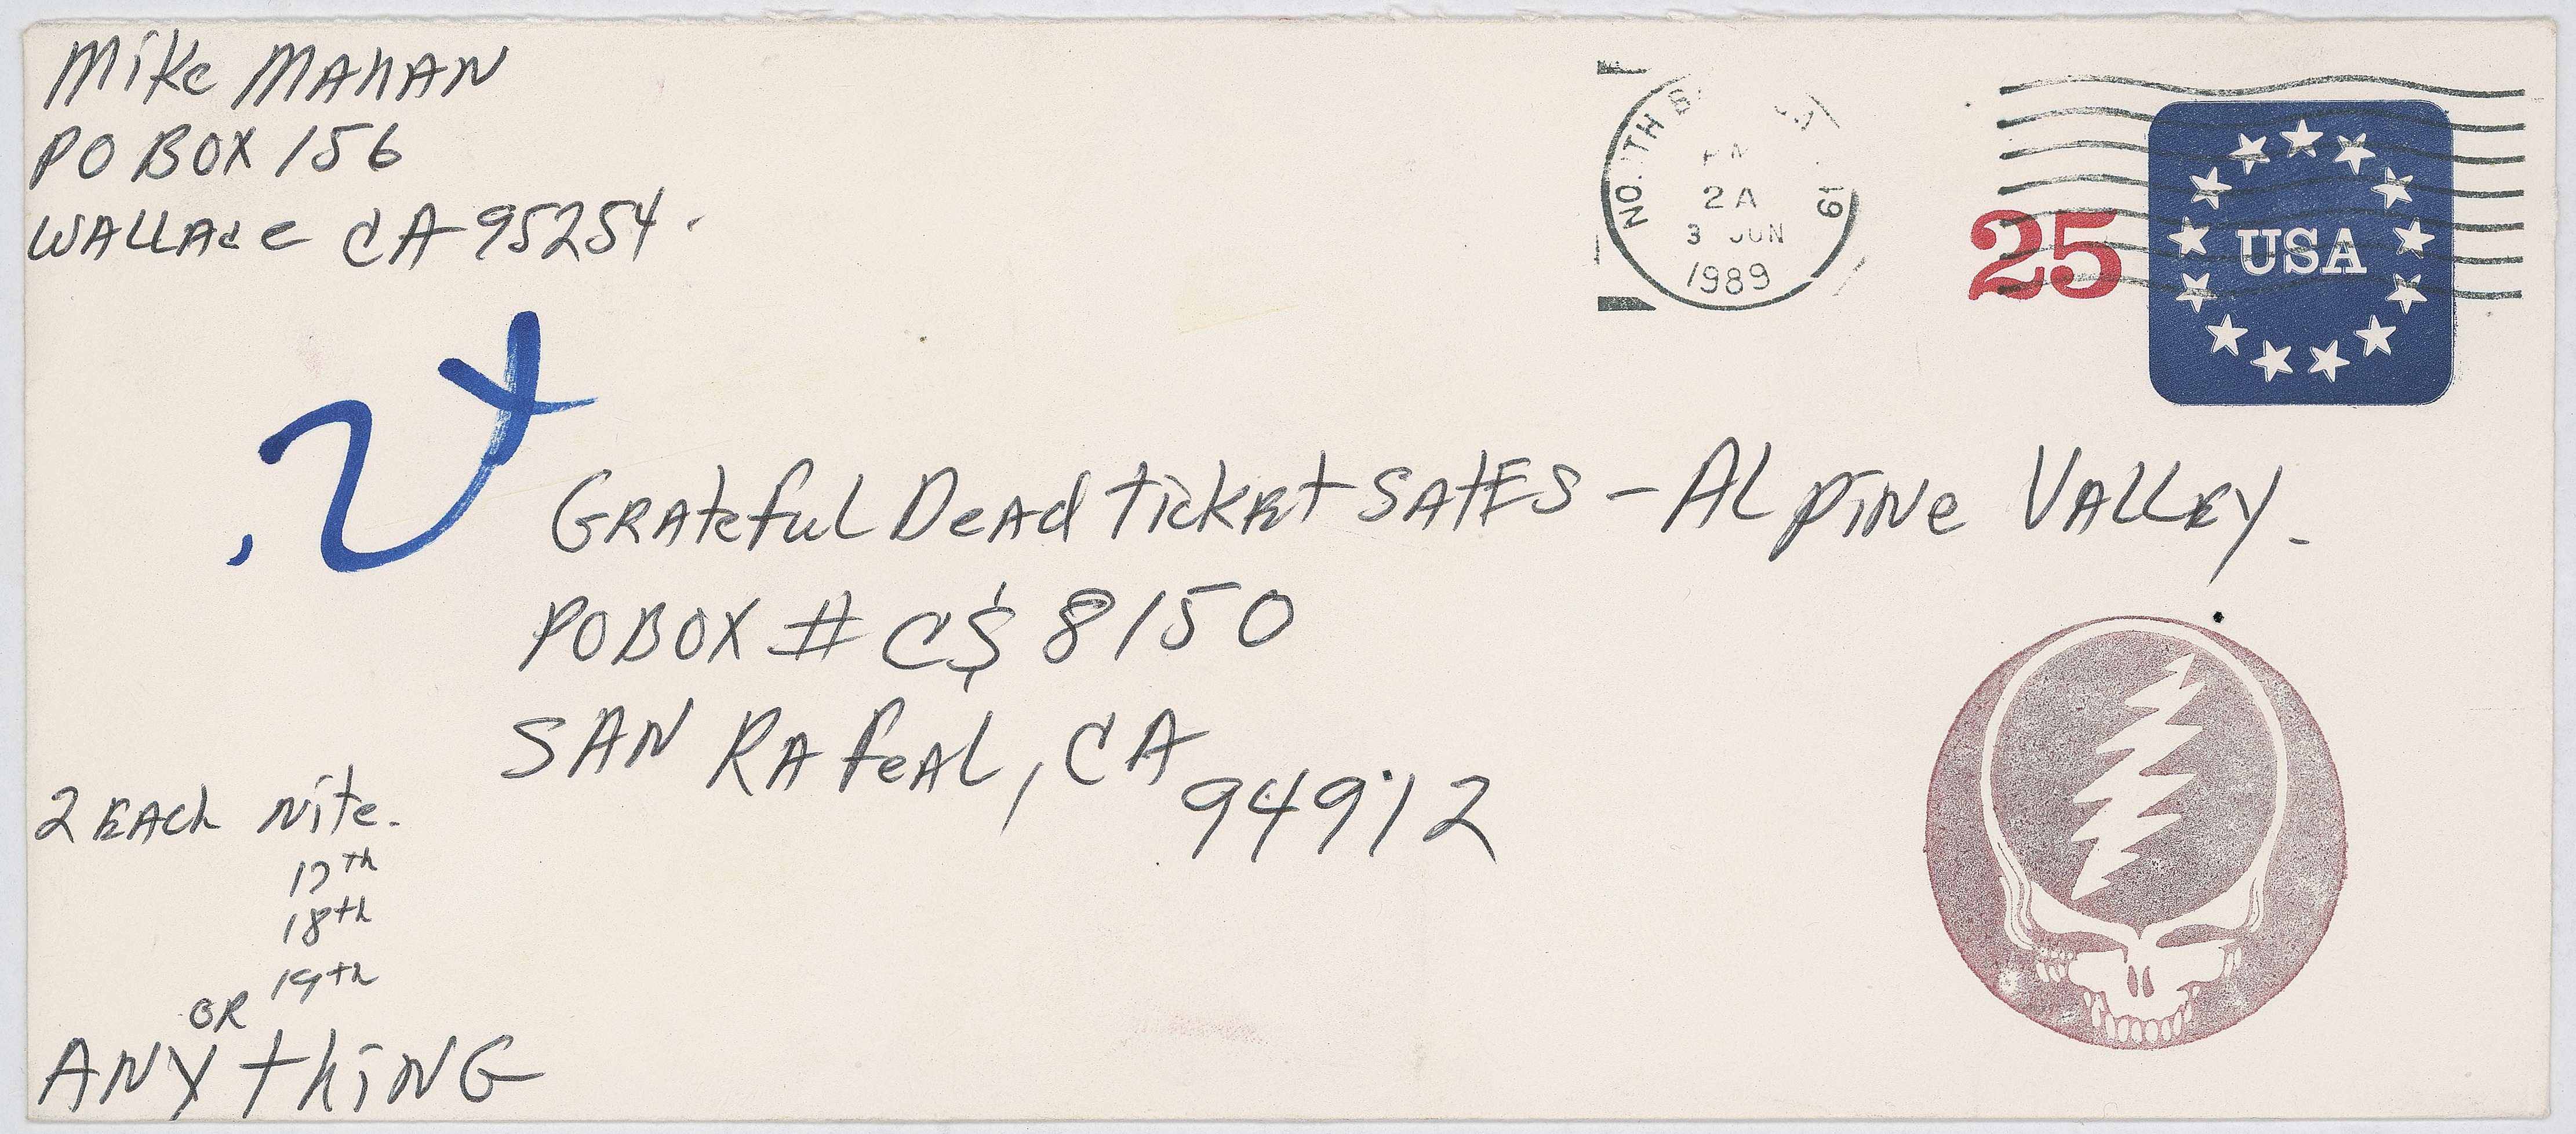 Mike MAHAN
PO BOX 156
WALLACE CA 95254.
NO. TH B
PM
2A
3 JUN
1989
19
25
USA
2x
GRAteful DeAd ticket SAtES - ALpiNe VALLEY.
PO BOX # C$ 8150
SAN RAfeAL, CA
94912
2 EACh Nite.
17th
18th
19th
OR
ANYthiNG